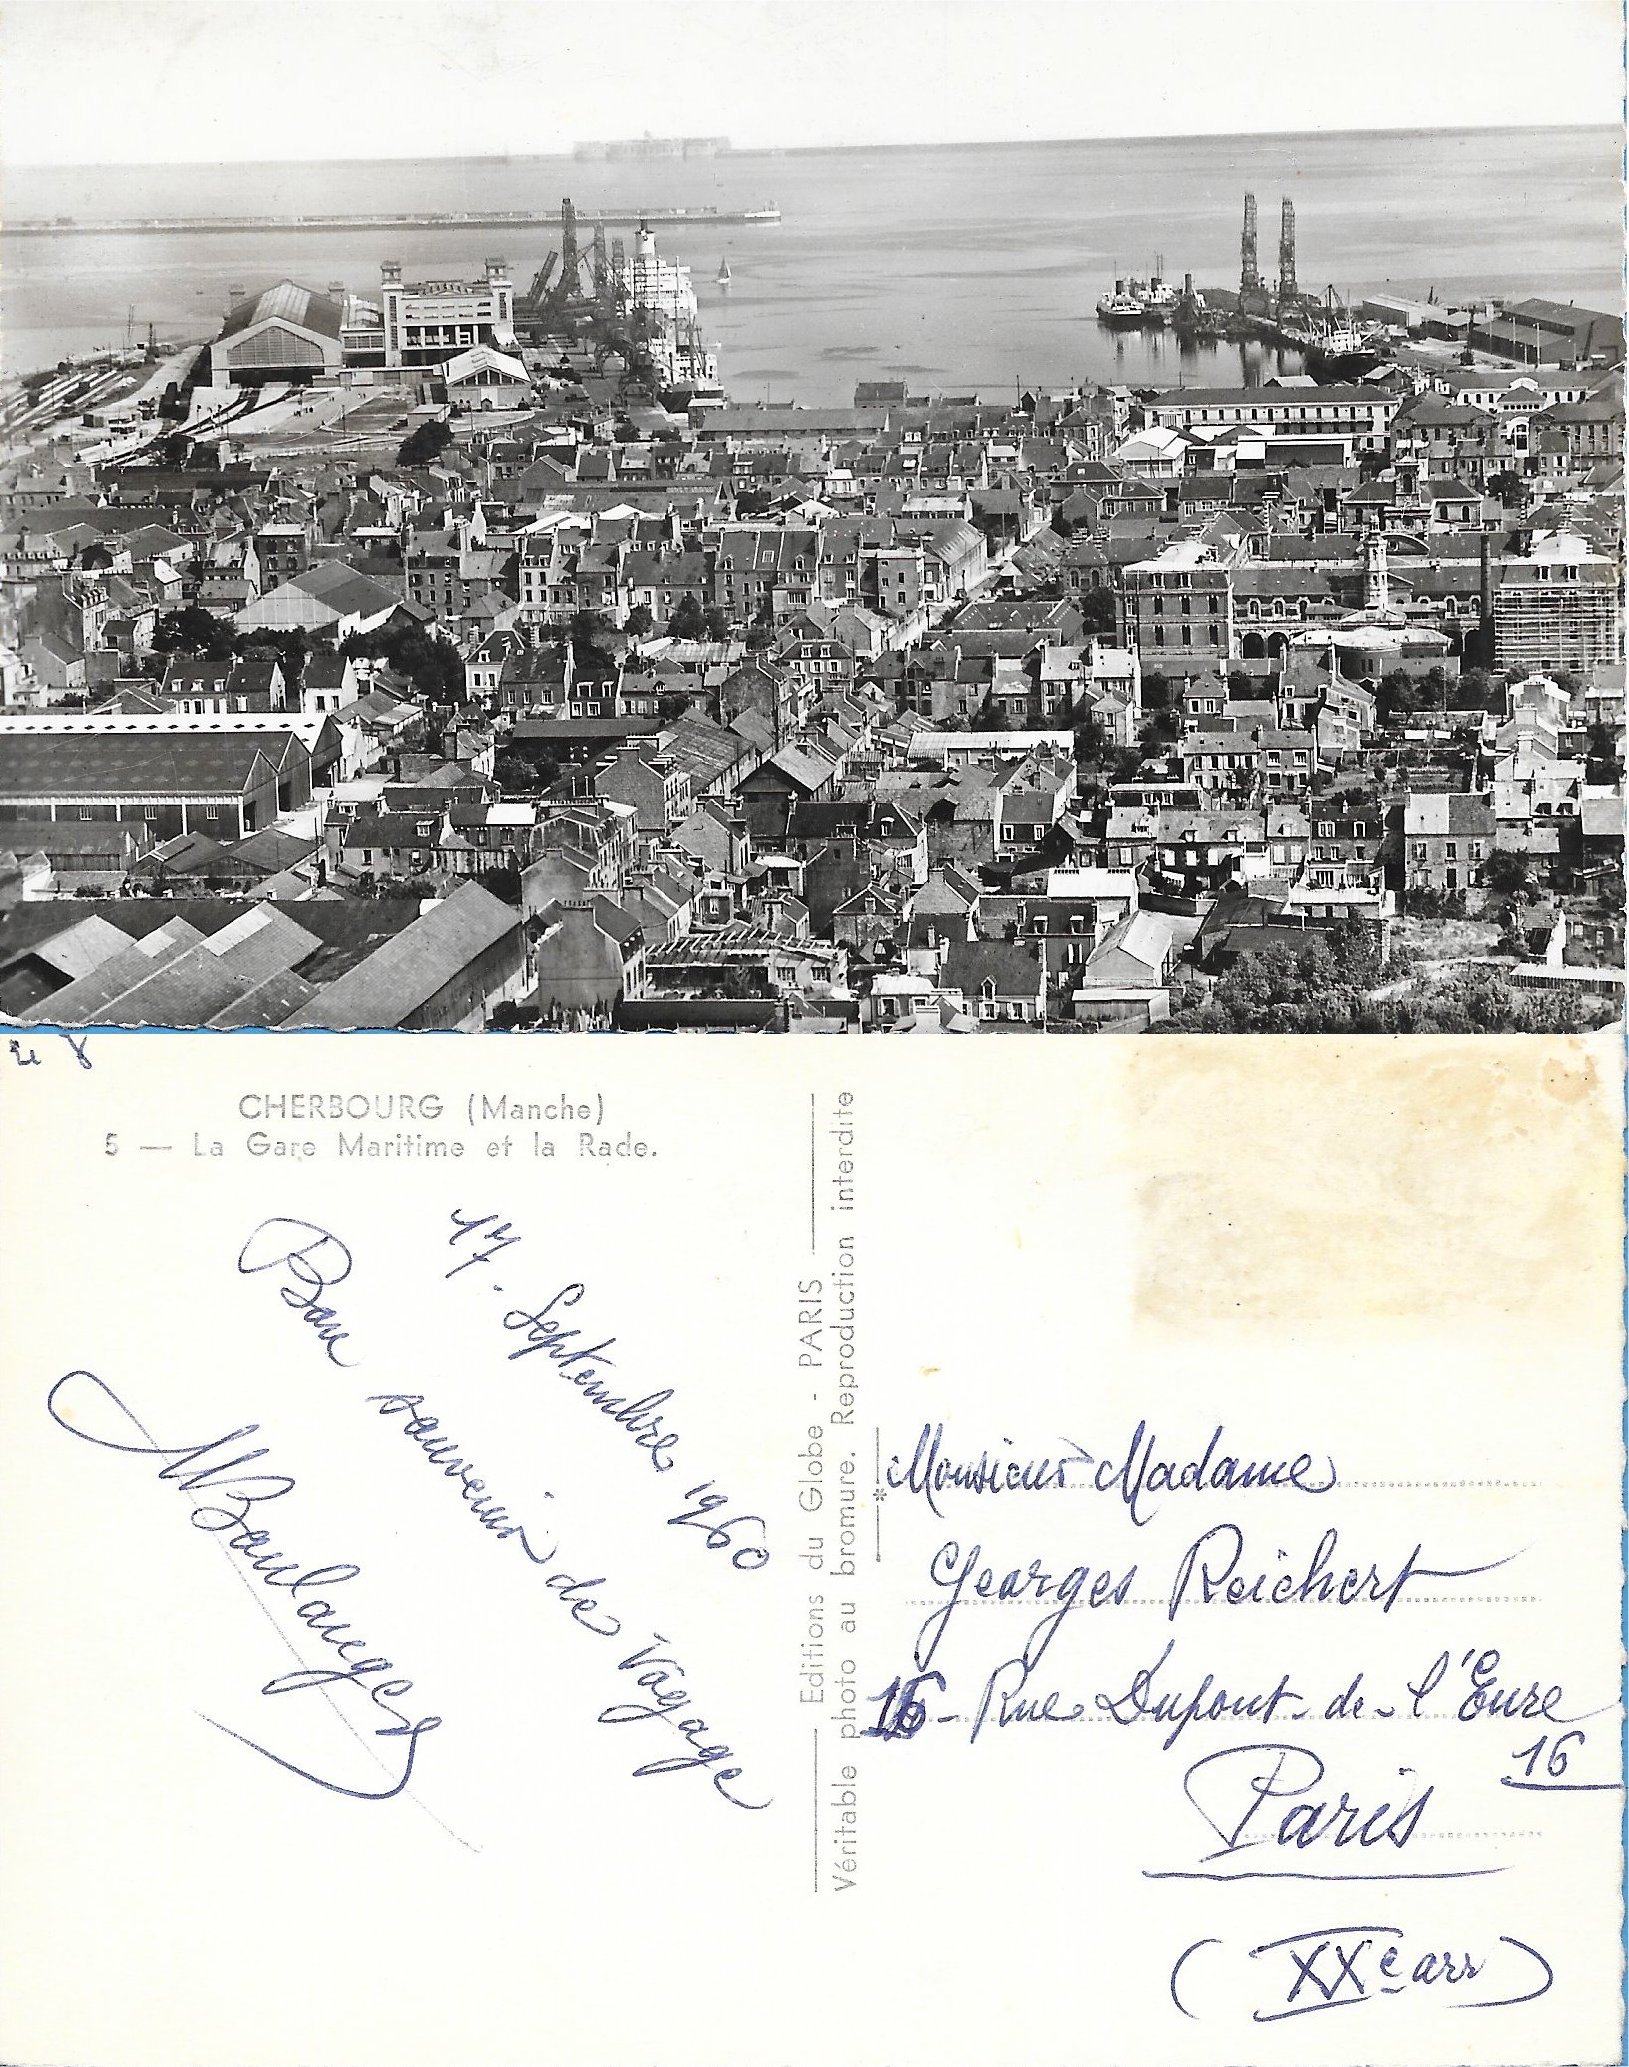 CHERBOURG (Manche)
5 — La Gare Maritime et la Rade.
17. Septembre 1960
Bon souvenir de
Voyage
MBoulanger
Editions du Globe - PARIS
Véritable photo au bromure. Reproduction interdite
Monsieur Madame
Georges Reichert
16 - Rue Dupont-de-l'Eure
16
Paris
(XXe arr)